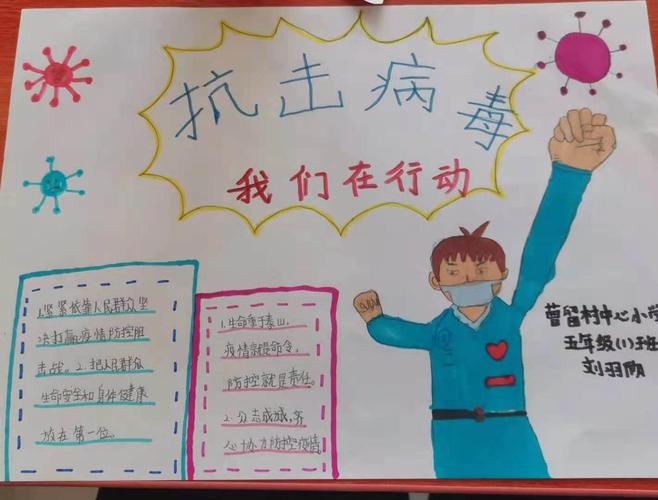 抗击病毒
我们在行动
1.紧紧依靠人民群众坚
决打赢疫情防控阻
击战。2.把人民群众
生命安全和身体健康
放在第一位。
1.生命重于泰山,
疫情就是命令,
防控就是责任。
2.众志成城,齐
心协力防控疫情
曹留村中心小学
五年级(1)班
刘羽